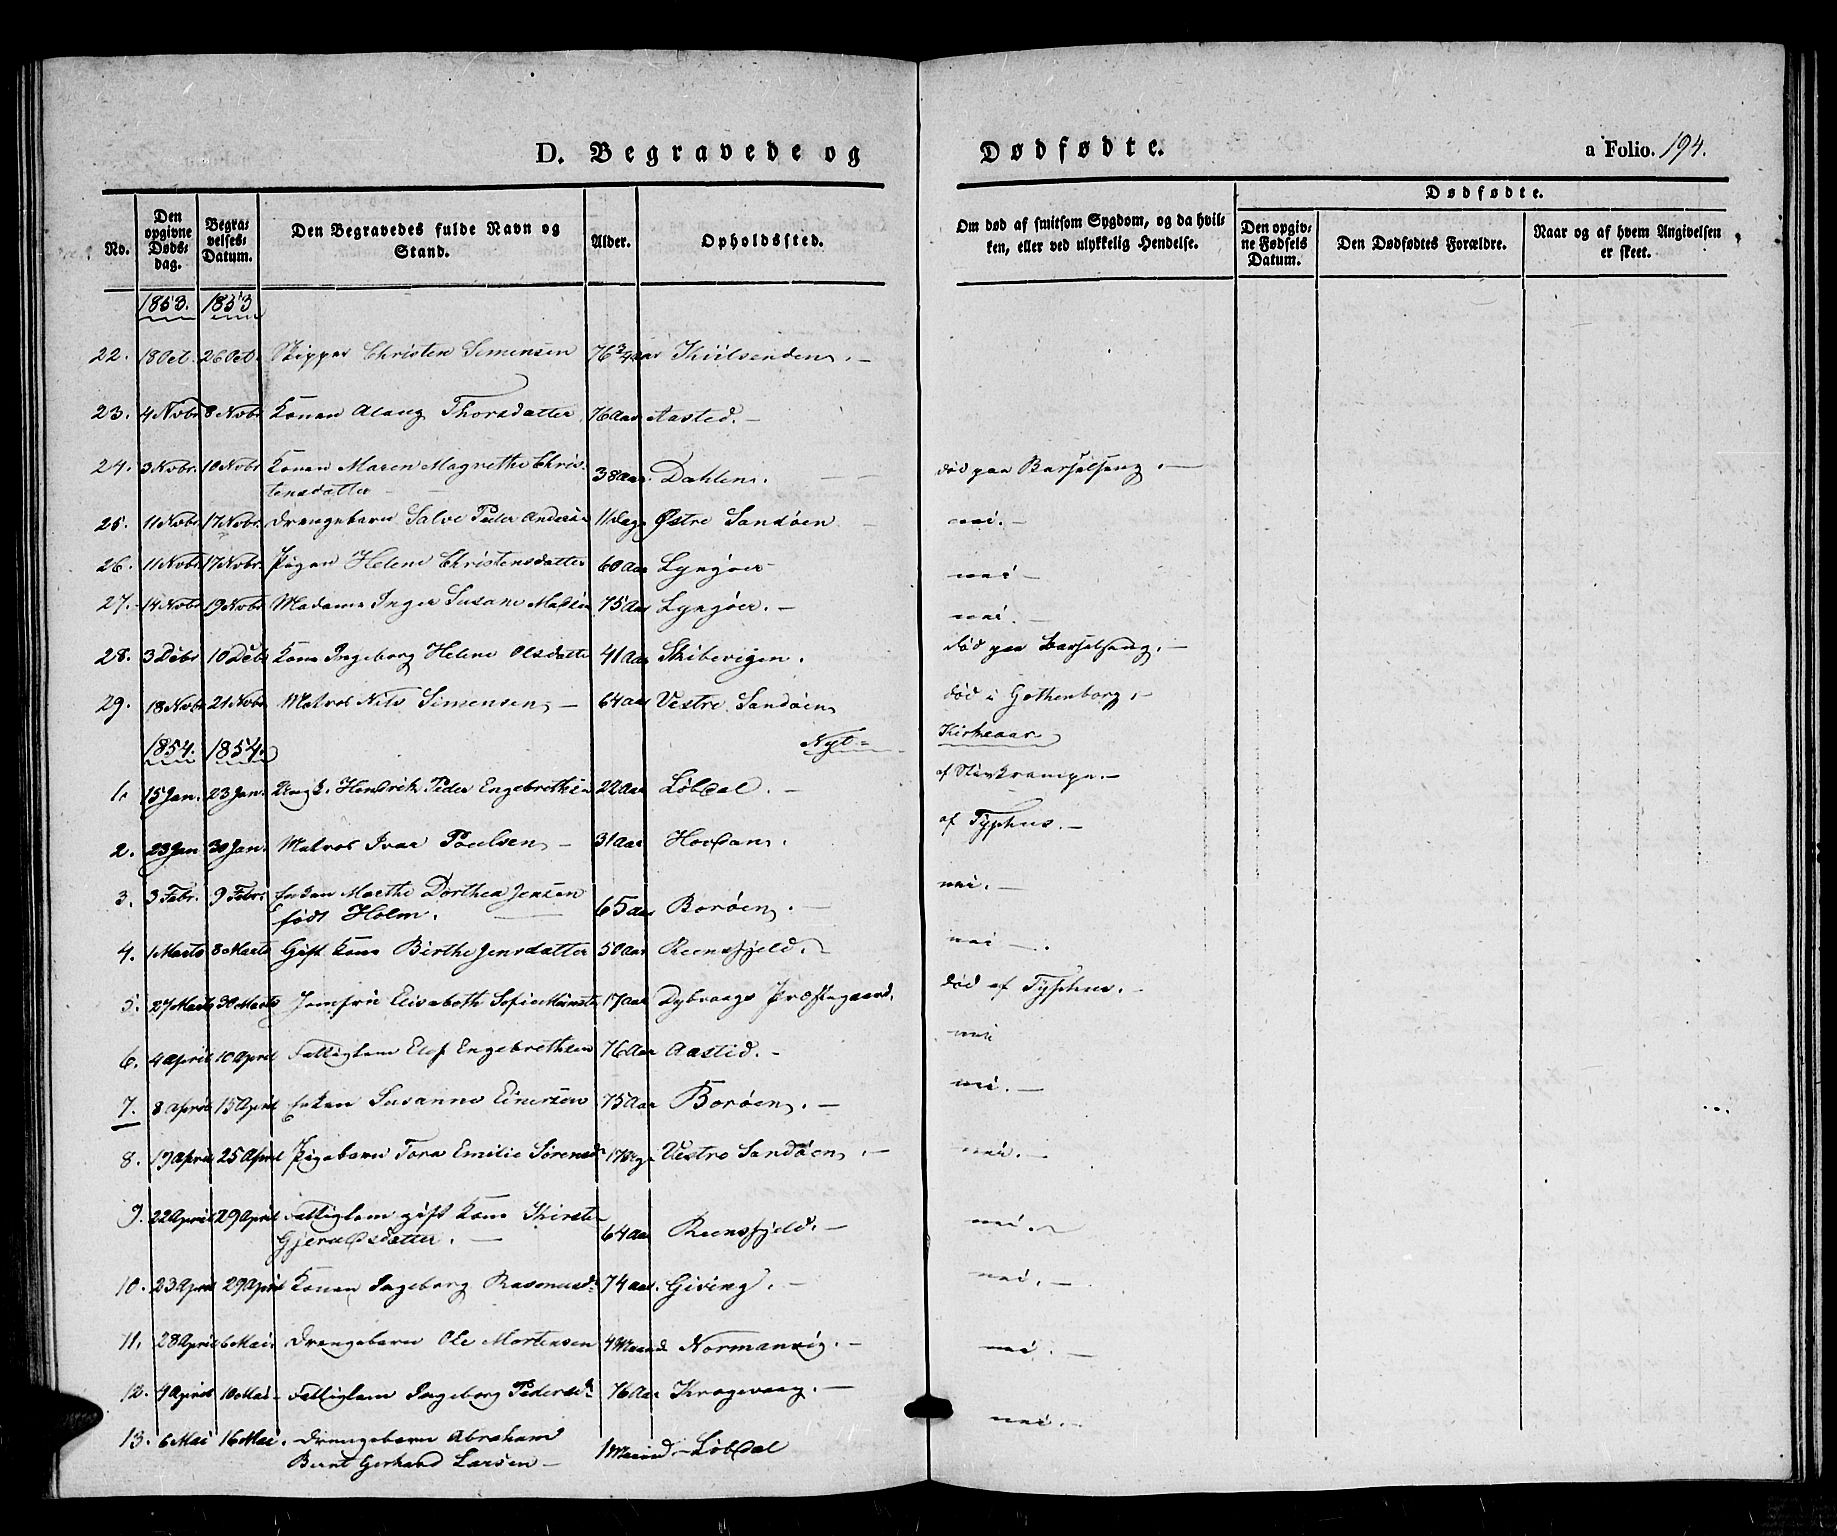 D. Begravede og Dødfødte. a Folio. 194.
No. Den opgivne Døds-dag. Begra-velses-Datum. Den Begravedes fulde Navn og Stand. Alder. Opholdssted. Om død af smitsom Sygdom, og da hvil-ken, eller ved ulykkelig Hendelse. Dødfødte. Den opgiv-ne Fødsels Datum. Den Dødfødtes Forældre. Naar og af hvem Angivelsen er skeet.
1853. 1853
22. 18 Oct. 26 Oct. Skipper Christen Simensen 76 3/4 aar Kiilsenden. —
23. 4 Novbr 8 Novbr. Konen Alaug Thorsdatter 76 Aar Aasted. —
24. 3 Novbr. 10 Novbr Konen Maren Magrethe Chris-
tensdatter — 38 Aar. Dahlen. — død paa Barselseng. —
25. 11 Novbr. 17 Novbr. Drengebarn Salve Peder Andersen 11 Dage Østre Sandøen nei. —
26. 11 Novbr. 17 Novbr. Pigen Helene Christensdatter 60 Aar Lyngøer nei —
27. 14 Novbr 19 Novbr Madame Inger Susane Madsen 75 Aar Lyngøer. — nei. —
28. 3 Debr 10 Debr Kone Ingeborg Helene Olsdatte 41 Aar Skibevigen. død paa Barselseng. —
29. 18 Novbr 21 Novbr Matros Nils Simensen — 64 aar Vestre Sandøen død i Gothenborg. —
1854. 1854. Nyt Kirkeaar
1. 15 Jan. 23 Jan. Ungk. Hendrik Peder Engebrethsen 22 Aar Løbdal. — af
2. 23 Jan 30 Jan. Matros Ivar Poulsen — 31 Aar Hovdan. af Typhus. —
3. 3 Febr. 9 Febr. Enken Marthe Dorthea Jensen
født Holm. — 65 aar Borøen. — nei. —
4. 1 Marts 8 Marts Gift Kone Birthe Jensdatter 50 Aar Reensfjeld. nei —.
5. 27 Marts 30 Marts Jomfrue Elisabeth Sofie Münster 17 Aar Dybvaags Præstegaard. død af Typhus. —
6. 4 April 10 April Fattiglem Elef Engebrethsen 76 Aar Aasted. — nei
7. 8 April 15 April Enken Susanne Einersen 75 Aar Borøen. — nei. —
8. 19 April 25 April Pigebarn Tora Emilie Sørensd. 17 Dage Vestre Sandøen. — nei. —
9. 22 April 29 April Fattiglem gift Kone Kirste
Gjeruldsdatter. — 64 Aar Reensfjeld. — nei. —
10. 23 April 29 April Konen Ingeborg Rasmusd. 74 aar. Giving. — nei. —
11. 28 April 6 Mai. Drengebarn Ole Mortensen 4 Maaned Normanvig. — nei. —
12. 9 April 10 Mai. Fattiglem Ingeborg Pedersd. 76 Aar Krogevaag. —
13. 6 Mai 16 Mai. Drengebarn Abraham
Bernt Gerhard Larsen — 1 Maaned — Løbdal nei. —